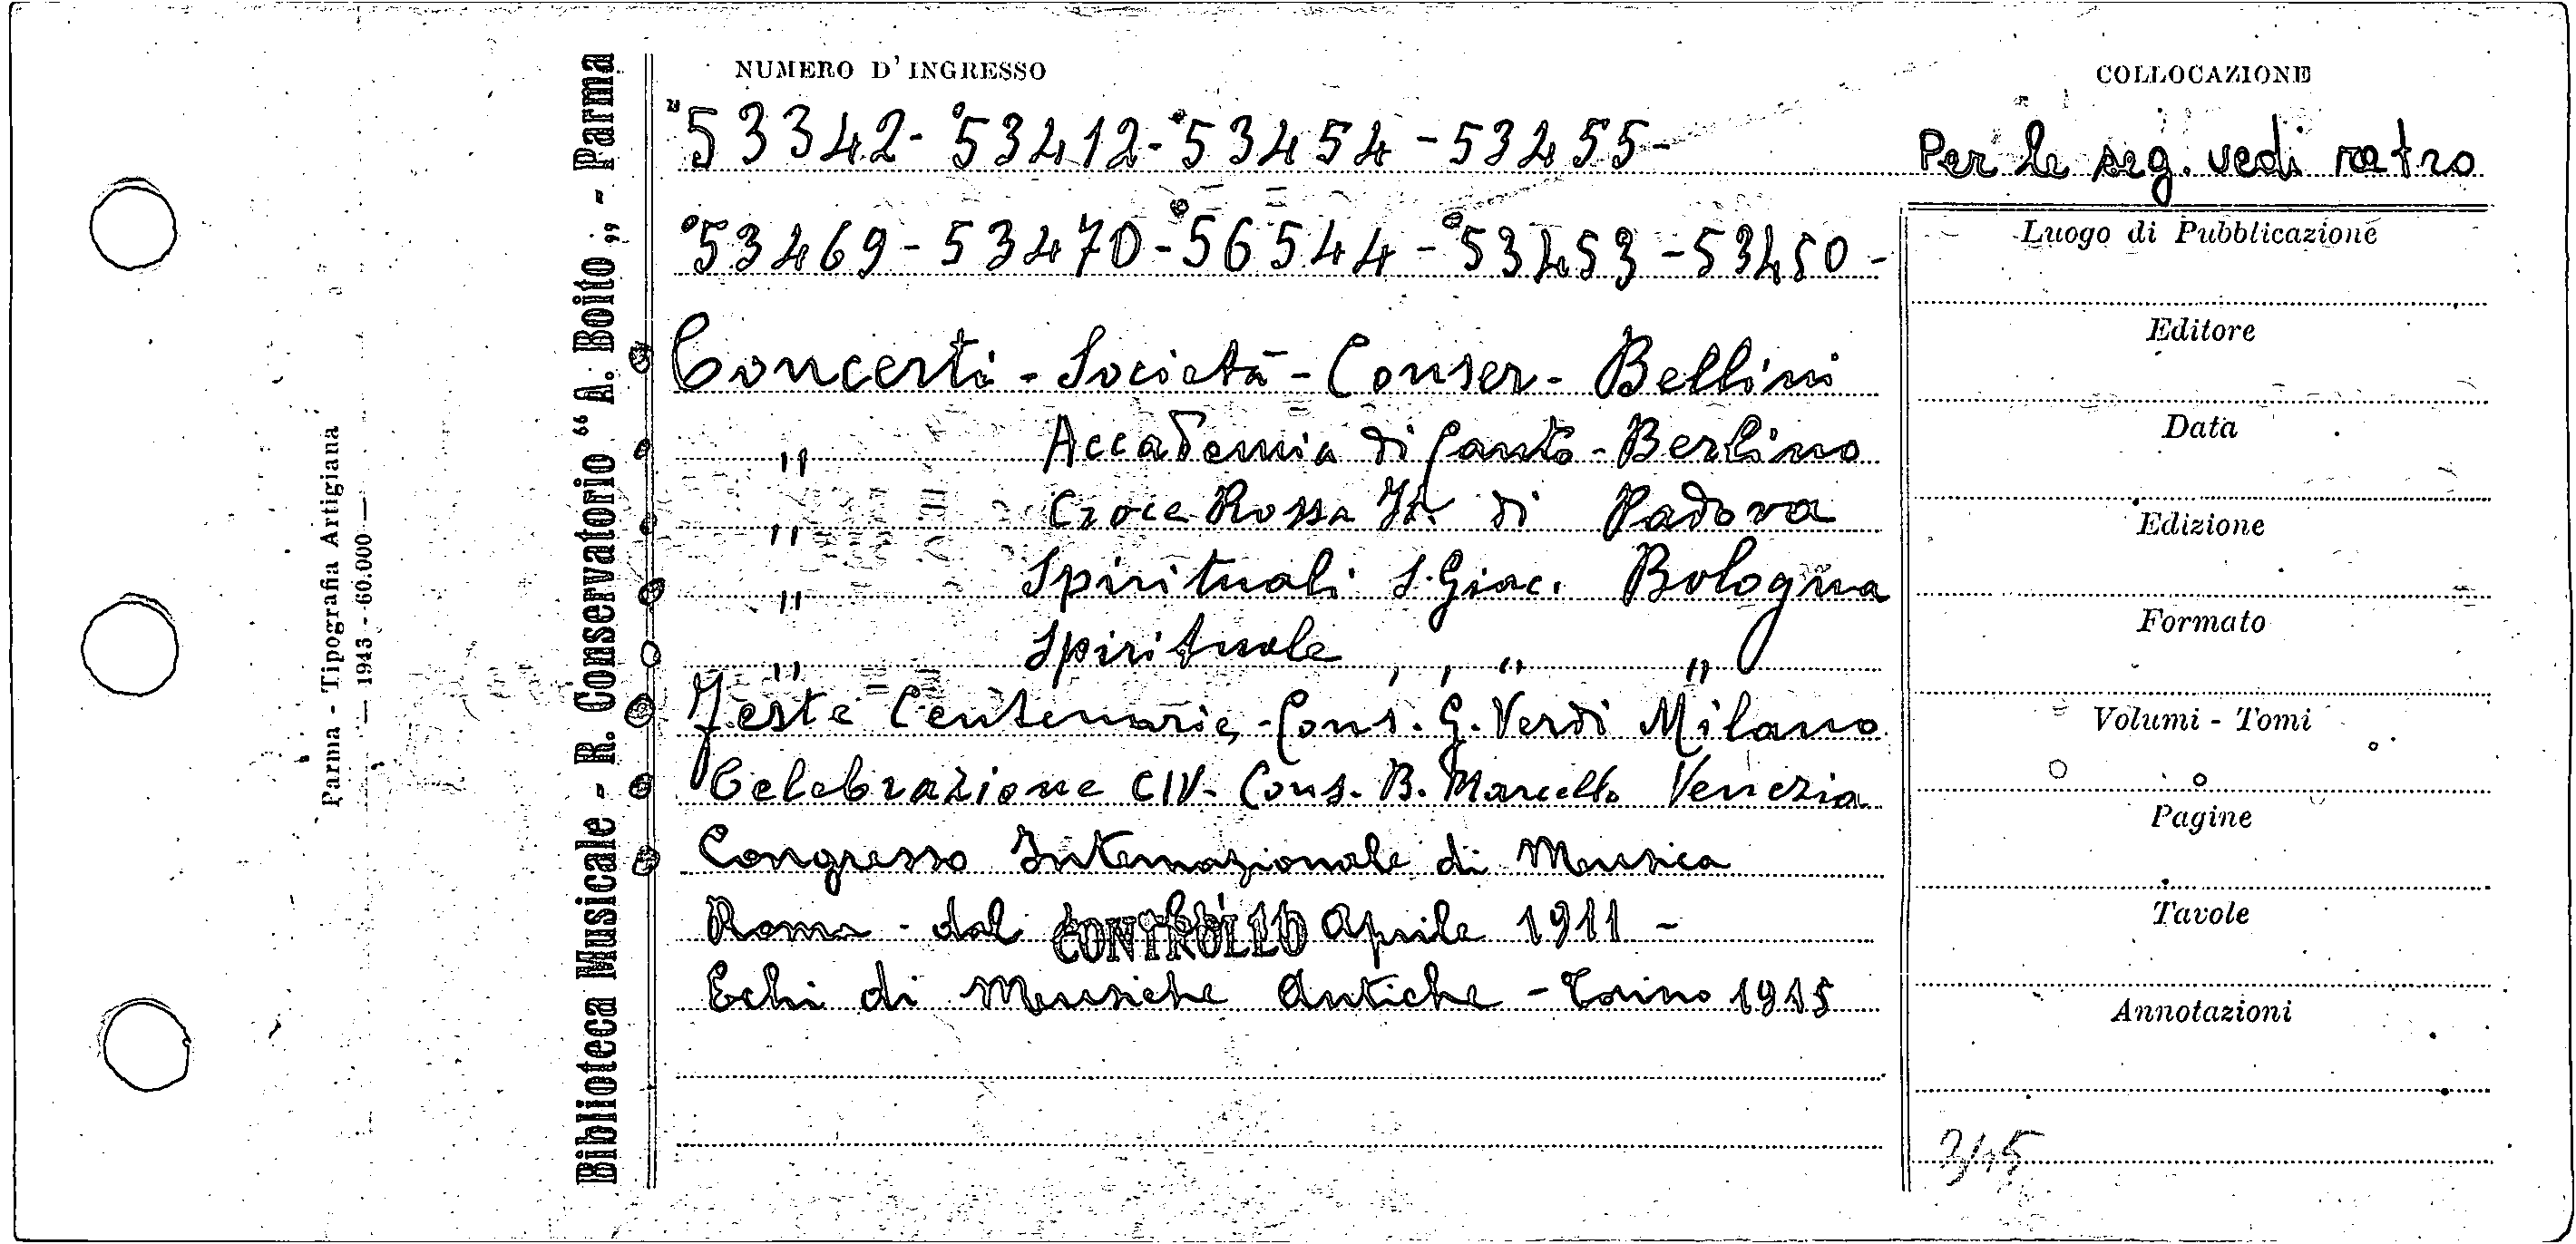 Parma - Tipografia Artigiana
— 1943 - 60.000 —
Biblioteca Musicale - R. Conservatorio "A. Boito„ - Parma
NUMERO D'INGRESSO
53342-53412-53454-53455-
53469-53470-56544-53453-53450-
Concerti - Società - Conser. Bellini
„ Accademia di Canto - Berlino
„ Croce Rossa It. di Padova
„ Spirituali S. Giac. Bologna
„ Spirituale „ „ „
Feste Centenarie, Cons. G. Verdi Milano
Celebrazione CIV. Cons. B. Marcello Venezia
Congresso Internazionale di Musica
Roma - dal CONTROLLO Aprile 1911 -
Echi di Musiche Antiche - Torino 1915
COLLOCAZIONE
Per le seg. vedi ratro
Luogo di Pubblicazione
Editore
Data
Edizione
Formato
Volumi - Tomi
Pagine
Tavole
Annotazioni